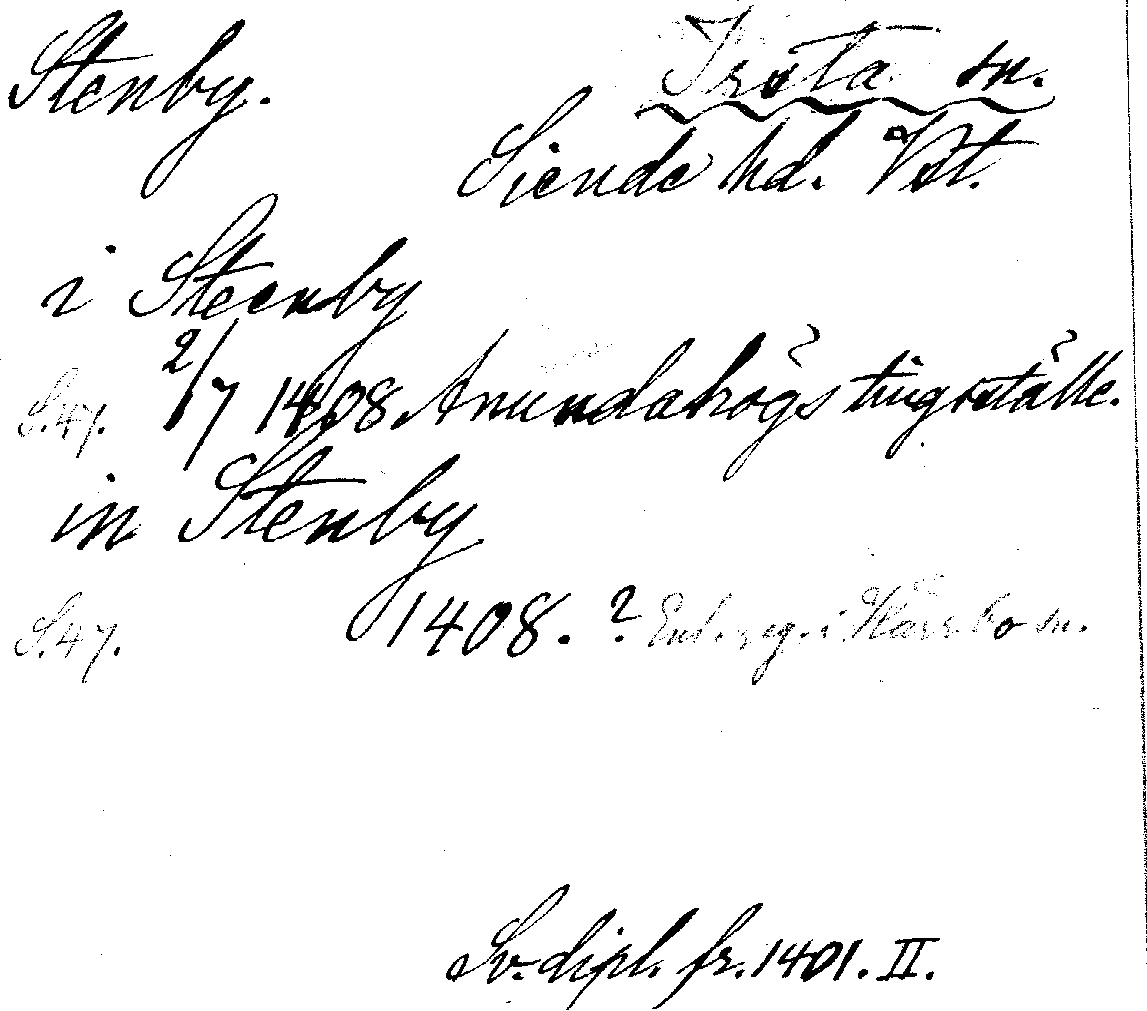 Stenby. Irsta sn.
Siende hd. Vst.
i Steenby
S.47. 2/7 1408. Anundahögs tingställe.
in Stenby
S.47. 1408. ? Enl. reg. i Harkbo sn.
Sv. dipl. fr. 1401. II.